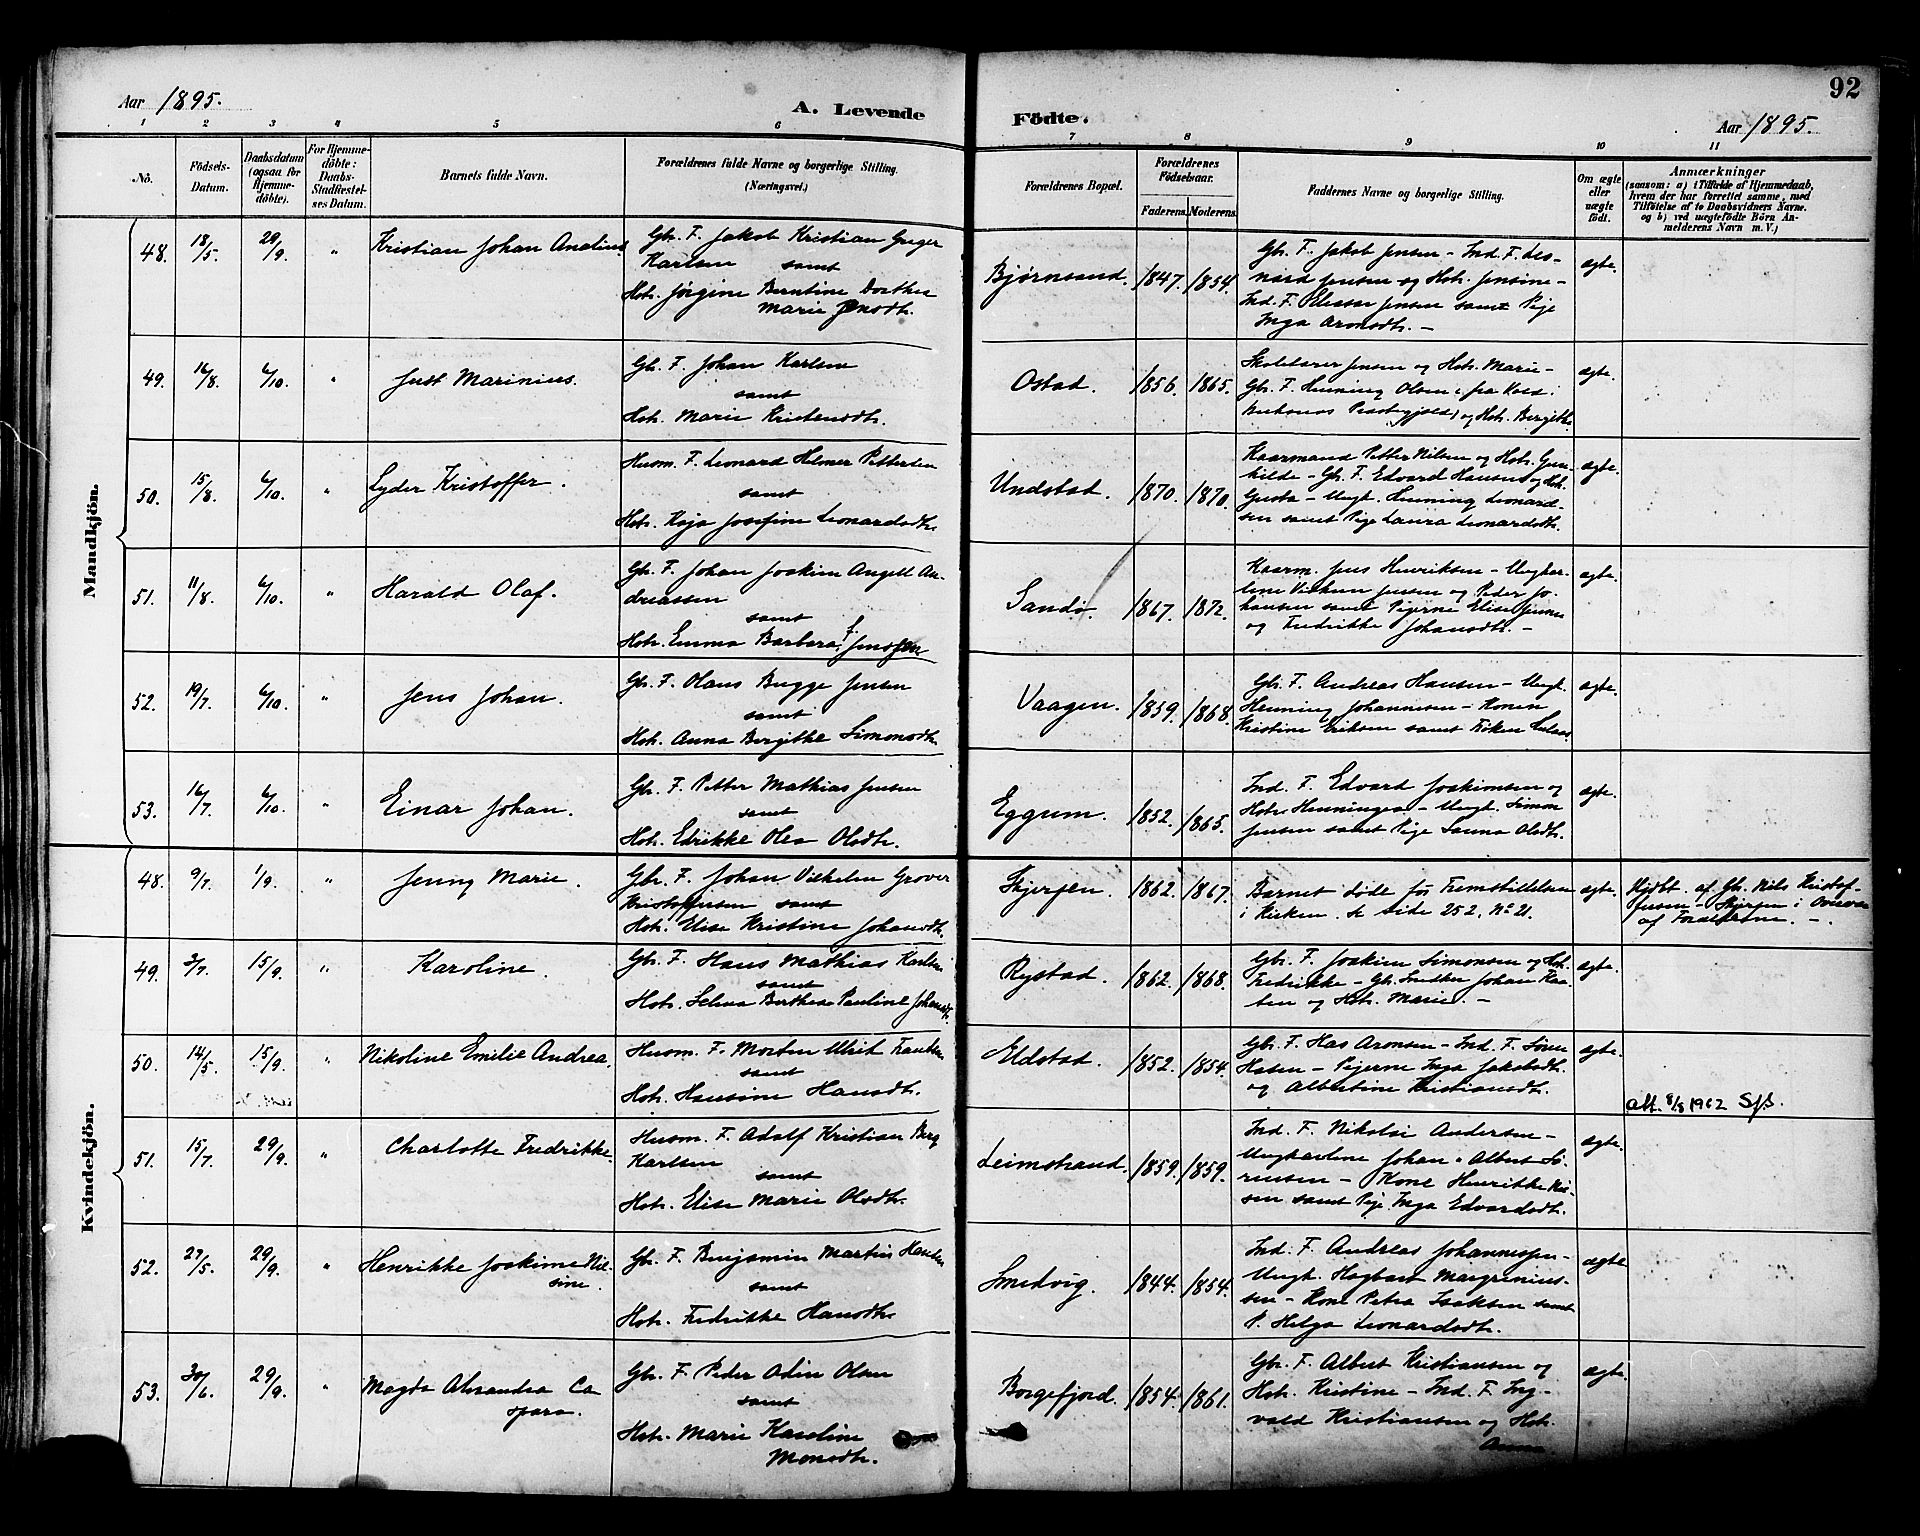 92
Aar 1895.
A. Levende Födte.
Aar 1895.
1 2 3 4 5 6 7 8 9 10 11
No.
Födsels-
Datum.
Daabsdatum
(ogsaa for
Hjemme-
döbte).
For Hjemme-
döbte:
Daabs-
Stadfæstel-
ses Datum.
Barnets fulde Navn.
Forældrenes fulde Navne og borgerlige Stilling.
(Næringsvei.)
Forældrenes Bopæl.
Forældrenes
Fødselsaar.
Faderens. Moderens.
Faddernes Navne og borgerlige Stilling.
Om ægte
eller
uægte
født.
Anmærkninger
(saasom: a) i Tilfælde af Hjemmedaab,
hvem der har forrettet samme, med
Tilföielse af to Daabsvidners Navne,
og b) ved uægtefödte Börn An-
melderens Navn m. V.)
Mandkjön.
48. 18/5 29/9 " Kristian Johan Analius.
Gbr. F. Jakob Kristian Greger
Karlsen samt
Hstr. Jörgine Berntine Dorthea
Marie
Bjørnsand. 1847. 1854.
Gbr. F. Jakob Jensen – Ind. F. Leo-
nard Jensen og Hstr. Jensine –
Ind. F. Jensen samt Pige
Inga Aronsdtr. –
ægte.
49. 16/8. 6/10. " Just Marinius.
Gbr. F. Johan Karlsen
samt
Hstr. Marie Kristensdtr.
Ostad. 1856. 1865.
Skolelærer Jensen og Hstr. Marie –
Gbr. F. Henning Olsen
Præstegjeld) og Hstr. Bergithe.
ægte.
50. 15/8. 6/10. " Lyder Kristoffer.
Husm. F. Leonard Helmer Pettersen
samt
Hstr. Kaja Josefine Leonardsdtr.
Undstad. 1870. 1870.
Kaarmand Petter Nilsen og Hstr. Gun-
hilde – Gbr. F. Edvard Hansen og Hstr.
Gusta – Ungk. Henning Leonard-
sen samt Pige Laura Leonardsdtr.
ægte.
51. 11/8 6/10. " Harald Olaf.
Gbr. F. Johan Joakim Angell An-
dreassen
samt
Hstr. Emma Barbara
Sandø. 1867. 1872.
Kaarm. Jens Henriksen – Ungkar-
lene Jensen og Peder Jo-
hansen samt Pigerne Elise
og Fredrikke Johansdtr. –
ægte.
52. 19/7. 6/10. " Jens Johan.
Gbr. F. Olaus Bugge Jensen
samt
Hstr. Anna Bergithe Simonsdtr.
Vaagen. 1859. 1868.
Gbr. F. Andreas Hansen – Ungk.
Henning Johannesen – Konen
Kristine Eriksen samt
ægte.
53. 16/7. 6/10. " Einar Johan.
Gbr. F. Petter Mathias Jensen
samt
Hstr. Edrikke Olea Olsdtr.
Eggum. 1852. 1865.
Ind. F. Edvard Joakimsen og
Hstr. Henningea – Ungk. Simon
Jensen samt Pige Olsdtr.
ægte.
Kvindekjön.
48. 9/7. 1/9. " Jenny Marie.
Gbr. F. Johan Vilhelm Grover
Kristoffersen samt
Hstr. Elise Kristine Johansdtr.
Skjerpen. 1862. 1867.
Barnet døde før Fremstillelsen
i Kirken. se side 252. No 21.
ægte.
Hjdbt. af Gbr. Nils Kristof-
fersen – Skjerpen i Overvær
af Forældrene. –
49. 3/7. 15/9. " Karoline.
Gbr. F. Hans Mathias Karlsen
samt
Hstr. Selma Berthea Pauline Johansdtr.
Rystad. 1862. 1868.
Gbr. F. Joakim Simonsen og Hstr.
Fredrikke – Gbr. Snedker Johan
og Hstr. Marie. –
ægte.
50. 14/5. 15/9. " Nikoline Emilie Andrea.
Husm. F. Morten Ulrik
samt
Hstr. Hansine Hansdtr.
Eldstad. 1852. 1854.
Gbr. F. Has Aronsen – Ind. F. Sören
Hasen – Pigerne Inga Jakobsdtr.
og Albertine Kristiansdtr.
ægte.
att. 8/8 1962 SfS.
51. 15/7. 29/9. " Charlotte Fredrikke.
Husm. F. Adolf Kristian Berg
Karlsen
samt
Hstr. Elise Marie Olsdtr.
Leimstrand. 1859. 1859.
Ind. F. Nikolai Andersen –
Ungkarlene Johan Albert Sö-
rensen – Kone Henrikke Nil-
sen samt Pige Inga Edvardsdtr.
ægte.
52. 27/5. 29/9. " Henrikke Joakime Nil-
sine.
Gbr. F. Benjamin Martin Hansen
samt
Hstr. Fredrikke Hansdtr.
Smedvig. 1844. 1854.
Ind. F. Andreas Johannessen –
Ungk. Hagbart Margrenius-
sen – Kone Petra Isaksen samt
P. Helga Leonardsdtr.
ægte
53. 30/6. 29/9. " Magda Alexandra Ca
spara.
Gbr. F. Peder Odin Olsen
samt
Hstr. Marie Karoline
Monsdtr.
Borgefjord. 1854. 1861.
Gbr. F. Albert Kristiansen og
Hstr. Kristine – Ind. F. Ing-
vald Kristiansen og Hstr.
Anna
ægte.